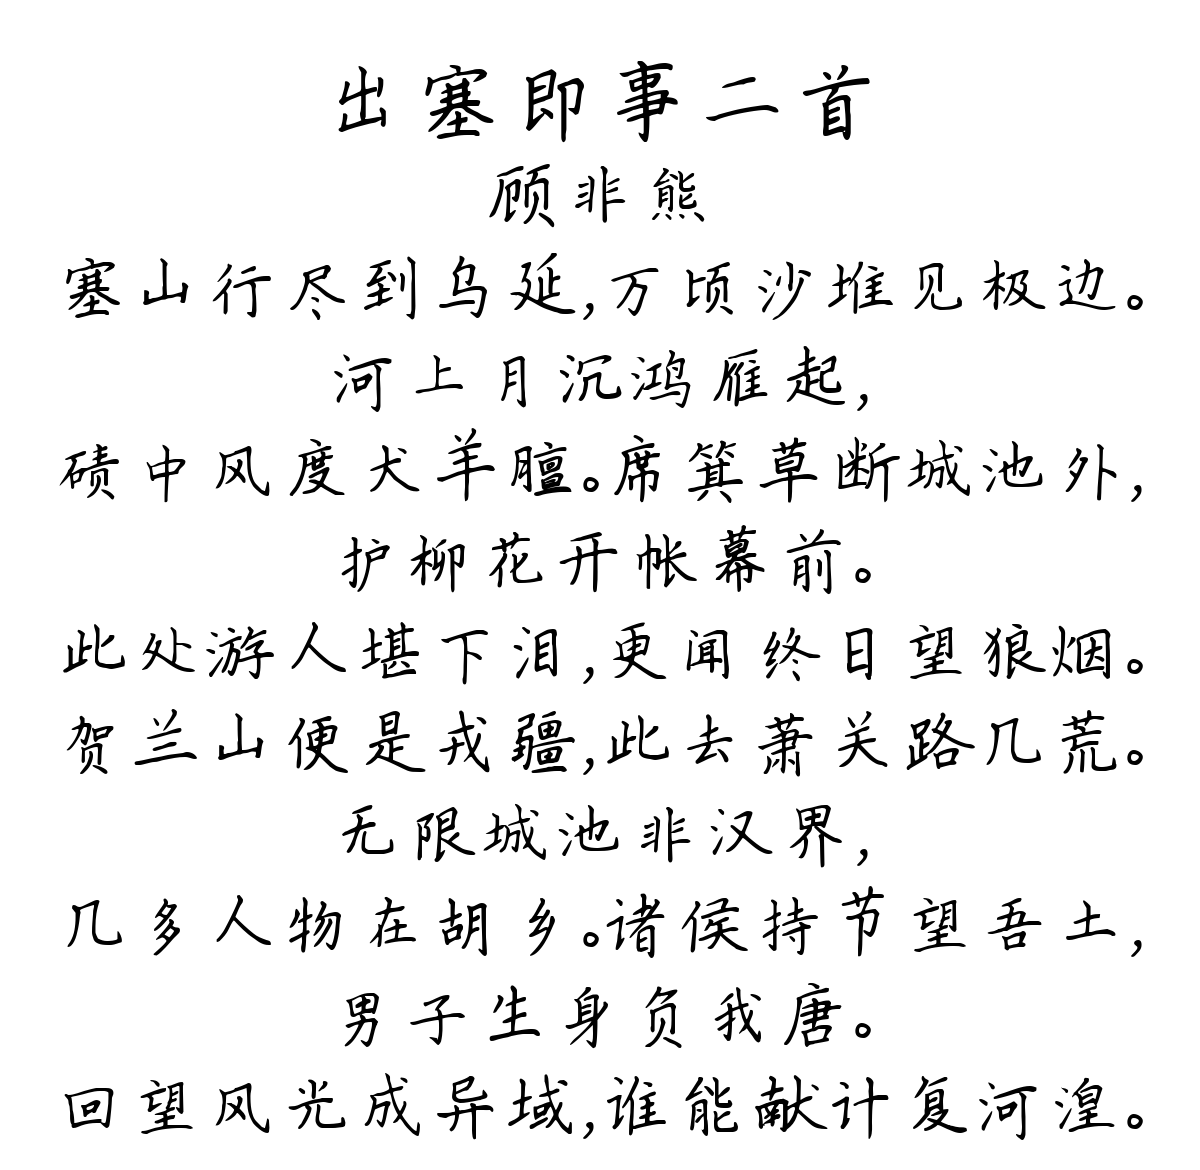 出塞即事二首
顾非熊
塞山行尽到乌延,万顷沙堆见极边。
河上月沉鸿雁起,
碛中风度犬羊膻。席箕草断城池外,
护柳花开帐幕前。
此处游人堪下泪,更闻终日望狼烟。
贺兰山便是戎疆,此去萧关路几荒。
无限城池非汉界,
几多人物在胡乡。诸侯持节望吾土,
男子生身负我唐。
回望风光成异域,谁能献计复河湟。